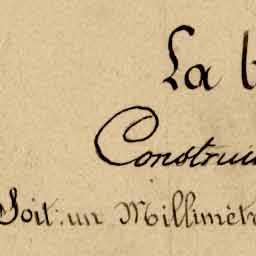 La
Construi
Soit: un Millimètr